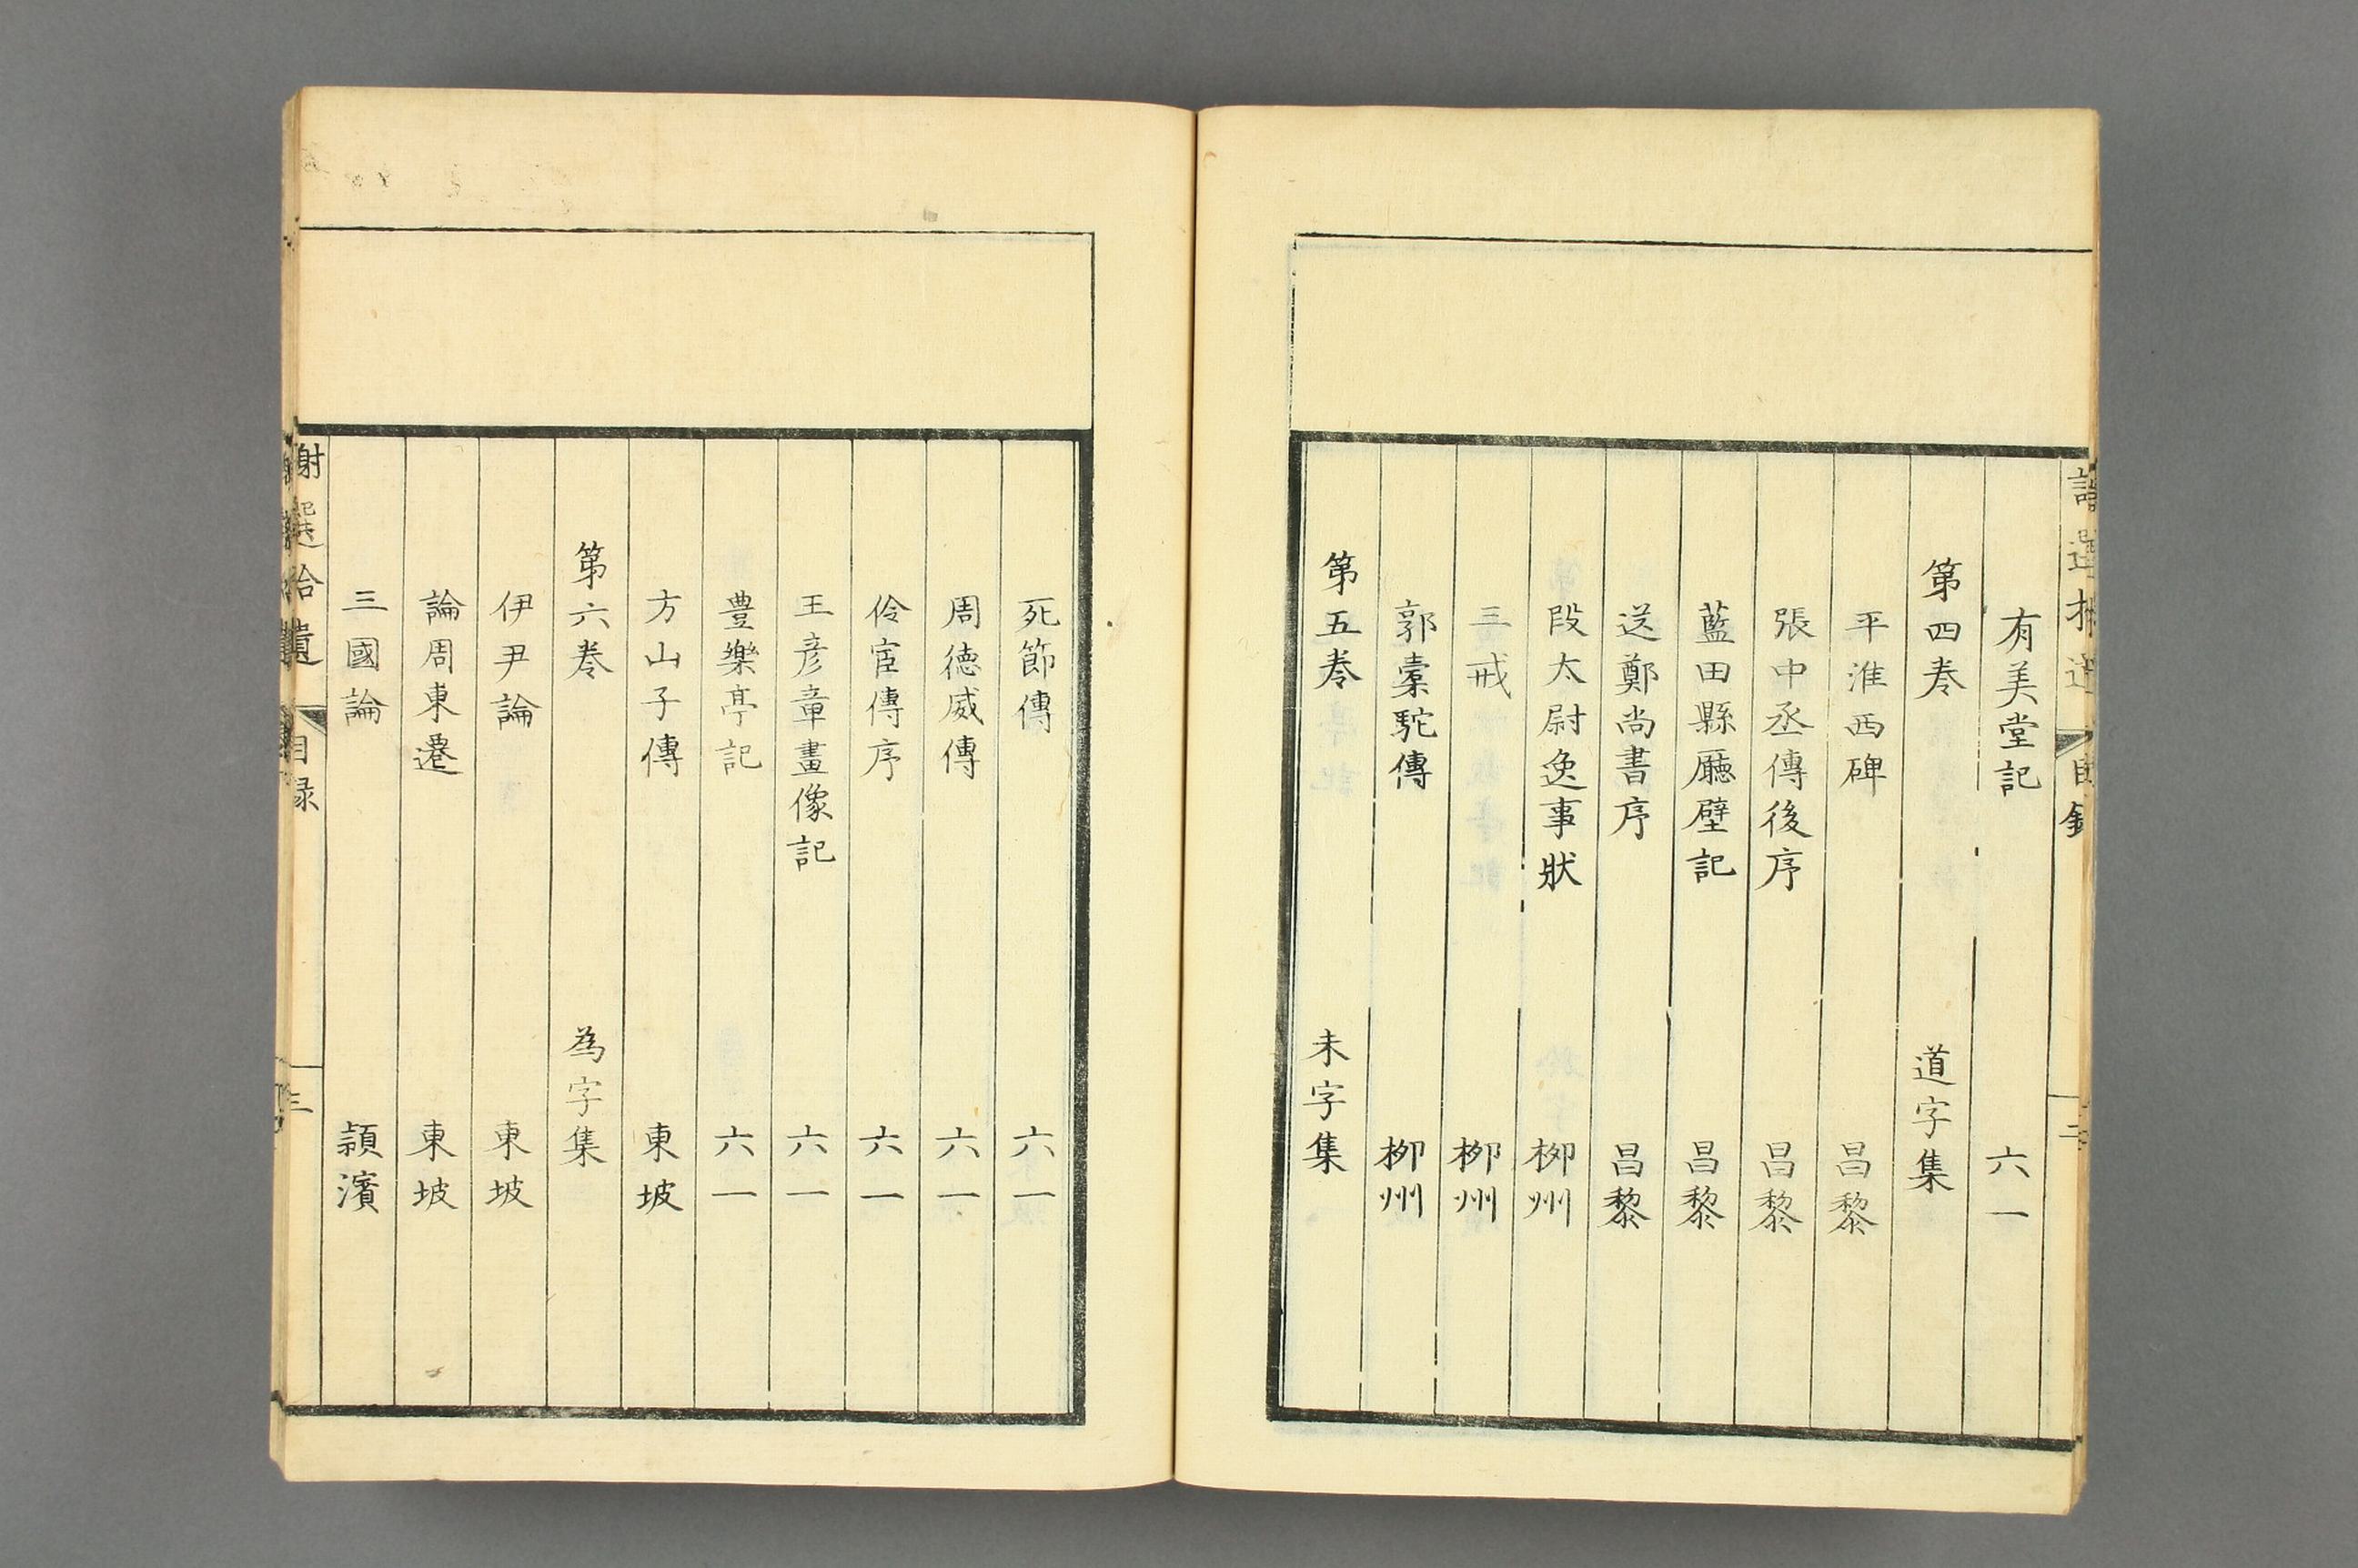 有美堂記 六一
第四巻 道字集
平淮西碑 昌黎
張中丞傳後序 昌黎
藍田縣廳壁記 昌黎
送鄭尚書序 昌黎
段太尉逸事狀 柳州
三戒 柳州
郭橐駝傳 柳州
第五巻 未字集
死節傳 六一
周徳威傳 六一
伶宦傳序 六一
王彦章畫像記 六一
豊樂亭記 六一
方山子傳 東坡
第六巻 為字集
伊尹論 東坡
論周東遷 東坡
三國論 頴濱
謝選拾遺 目録 三